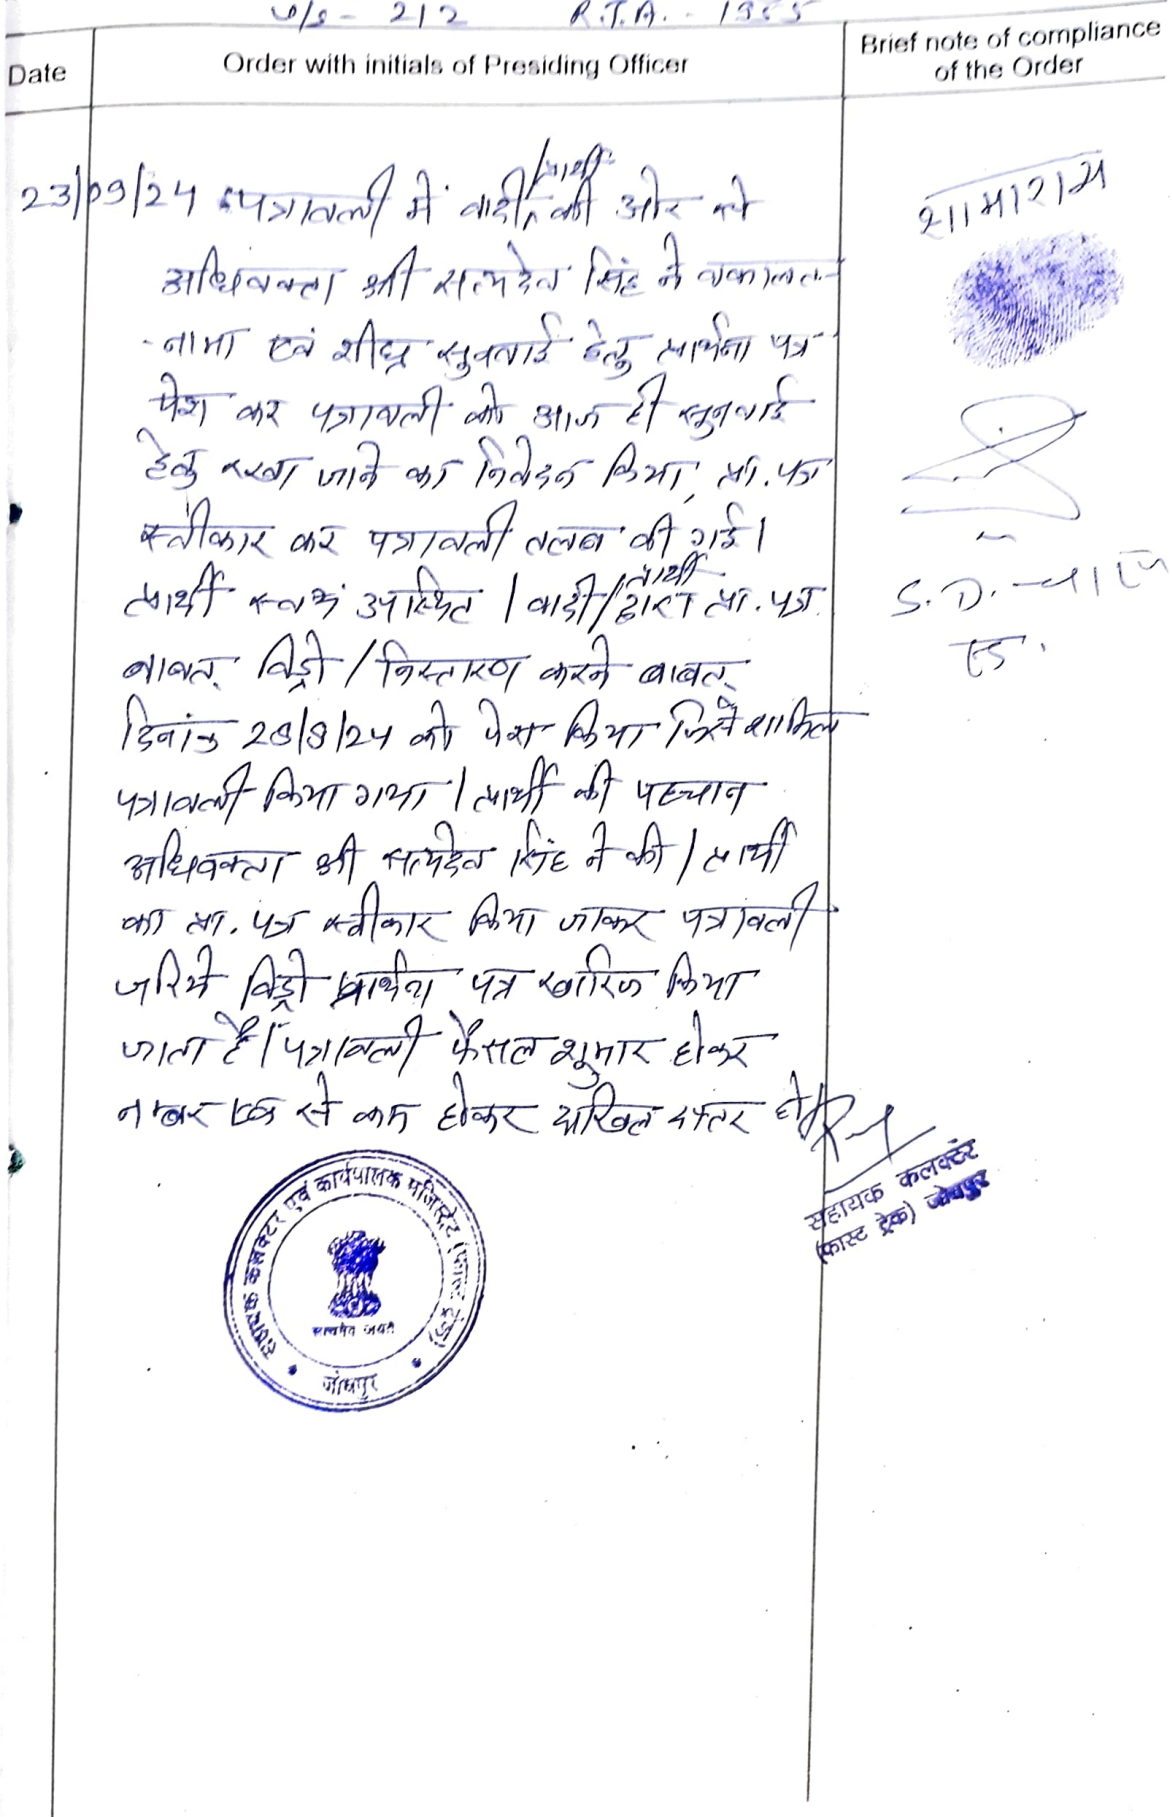 u/s - 212 R.T.A. - 1955
Date
Order with initials of Presiding Officer
Brief note of compliance
of the Order
23/09/24 पत्रावली में वादी/प्रार्थी की ओर से
अधिवक्ता श्री सत्यदेव सिंह ने वकालत-
-नामा एवं शीघ्र सुनवाई हेतु प्रार्थना पत्र
पेश कर पत्रावली को आज ही सुनवाई
हेतु रखा जाने का निवेदन किया, प्रा. पत्र
स्वीकार कर पत्रावली तलब की गई।
प्रार्थी स्वयं उपस्थित। वादी/प्रार्थी द्वारा प्रा. पत्र
बाबत् विड्रो/निस्तारण करने बाबत्
दिनांक 23/9/24 को पेश किया जिसे शामिल
पत्रावली किया गया। प्रार्थी की पहचान
अधिवक्ता श्री सत्यदेव सिंह ने की। प्रार्थी
का प्रा. पत्र स्वीकार किया जाकर पत्रावली
जरिये विड्रो प्रार्थना पत्र खारिज किया
जाता है। पत्रावली फैसल शुमार होकर
नम्बर एक से कम होकर दाखिल दफ्तर हो।
शामाराम
S.D.
सहायक कलक्टर
(फास्ट ट्रेक) जोधपुर
सहायक कलक्टर एवं कार्यपालक मजिस्ट्रेट (फास्ट ट्रेक)
सत्यमेव जयते
जोधपुर